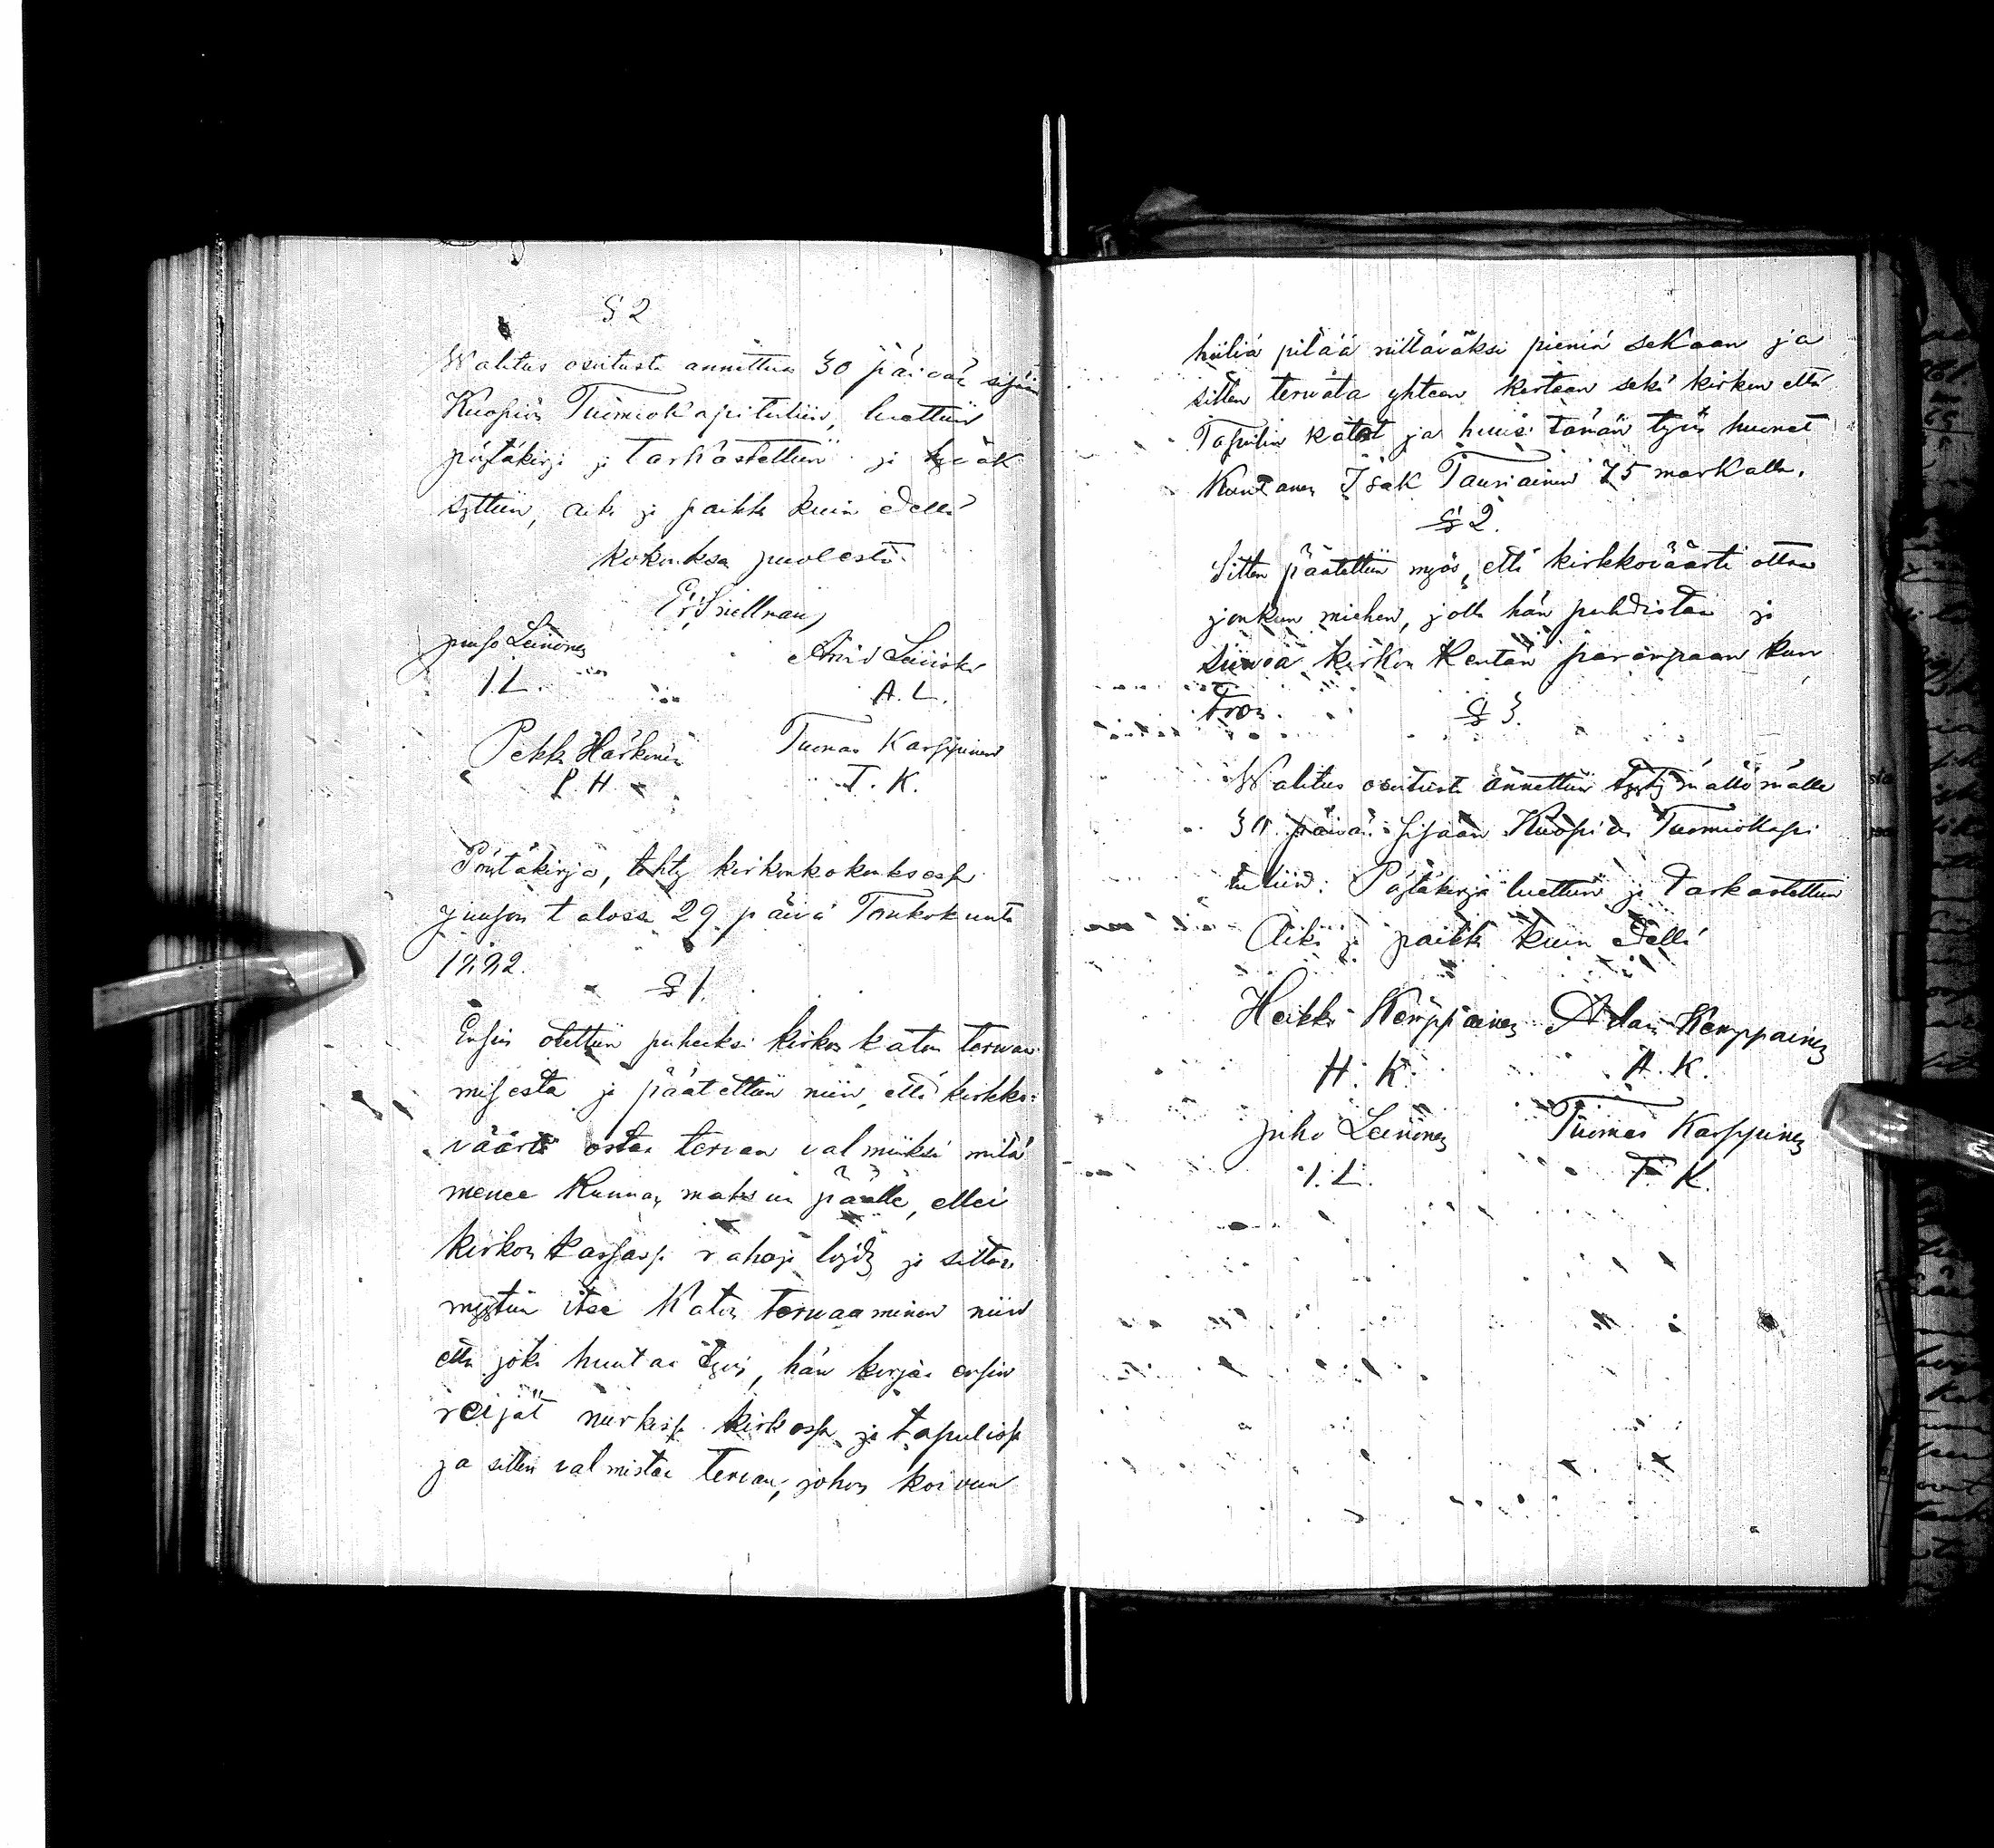 § 2
Walitus osoitusta annettiin 30 päivän sisään
Kuopion Tuomiokapituliin, luettiin
pöytäkirja ja tarkastettiin ja hyväk
syttiin, aika ja paikka kuin edellä
kokouksen puolesta.
Er. Snellman
Juuso Leinonen
Arvid Leiviskä
J. L.
A. L.
Pekka Härkönen
Tuomas Karppinen
P. H.
T. K.
Pöytäkirja, tehty kirkonkokouksessa
Juuson talossa 29 päivä Toukokuuta
1892.
§ 1.
Ensin otettiin puheeksi kirkon katon terwaa
misesta ja päätettiin niin, että kirkko-
väärti ostaa tervan valmiiksi mitä
menee Kunnan maksun päälle, ellei
kirkon kassassa rahoja löydy ja sitten
myytiin itse Katon terwaaminen niin
että joka huutaa työn, hän korjaa ensin
reijät nurkissa kirkossa ja tapulissa
ja sitten valmistaa tervan, johon koivun
hiiliä pitää riittäväksi pieniä seKaan ja
sitten tervata yhteen kertaan sekä kirkon että
Tapulin katot ja huusi tämän työn huonet
Isak Tauriainen 75 markalla.
§ 2.
Sitten päätettiin myös, että kirkkoväärti ottaa
jonkun miehen, jolla hän puhdistaa ja
siivoa kirkon Kentän parampaan kun
tvon.
§ 3.
Walitus osoitusta annettiin tyytymättömälle
30 päivän sisään Kuopion Tuomiokapi
tuliin. Pöytäkirja luettiin ja tarkastettiin
Aika ja paikka kuin edellä
Heikki Kemppainen Adam Kemppainen
H. K.
A. K.
Juho Leinonen
Tuomas Karppinen
J. L.
T. K.